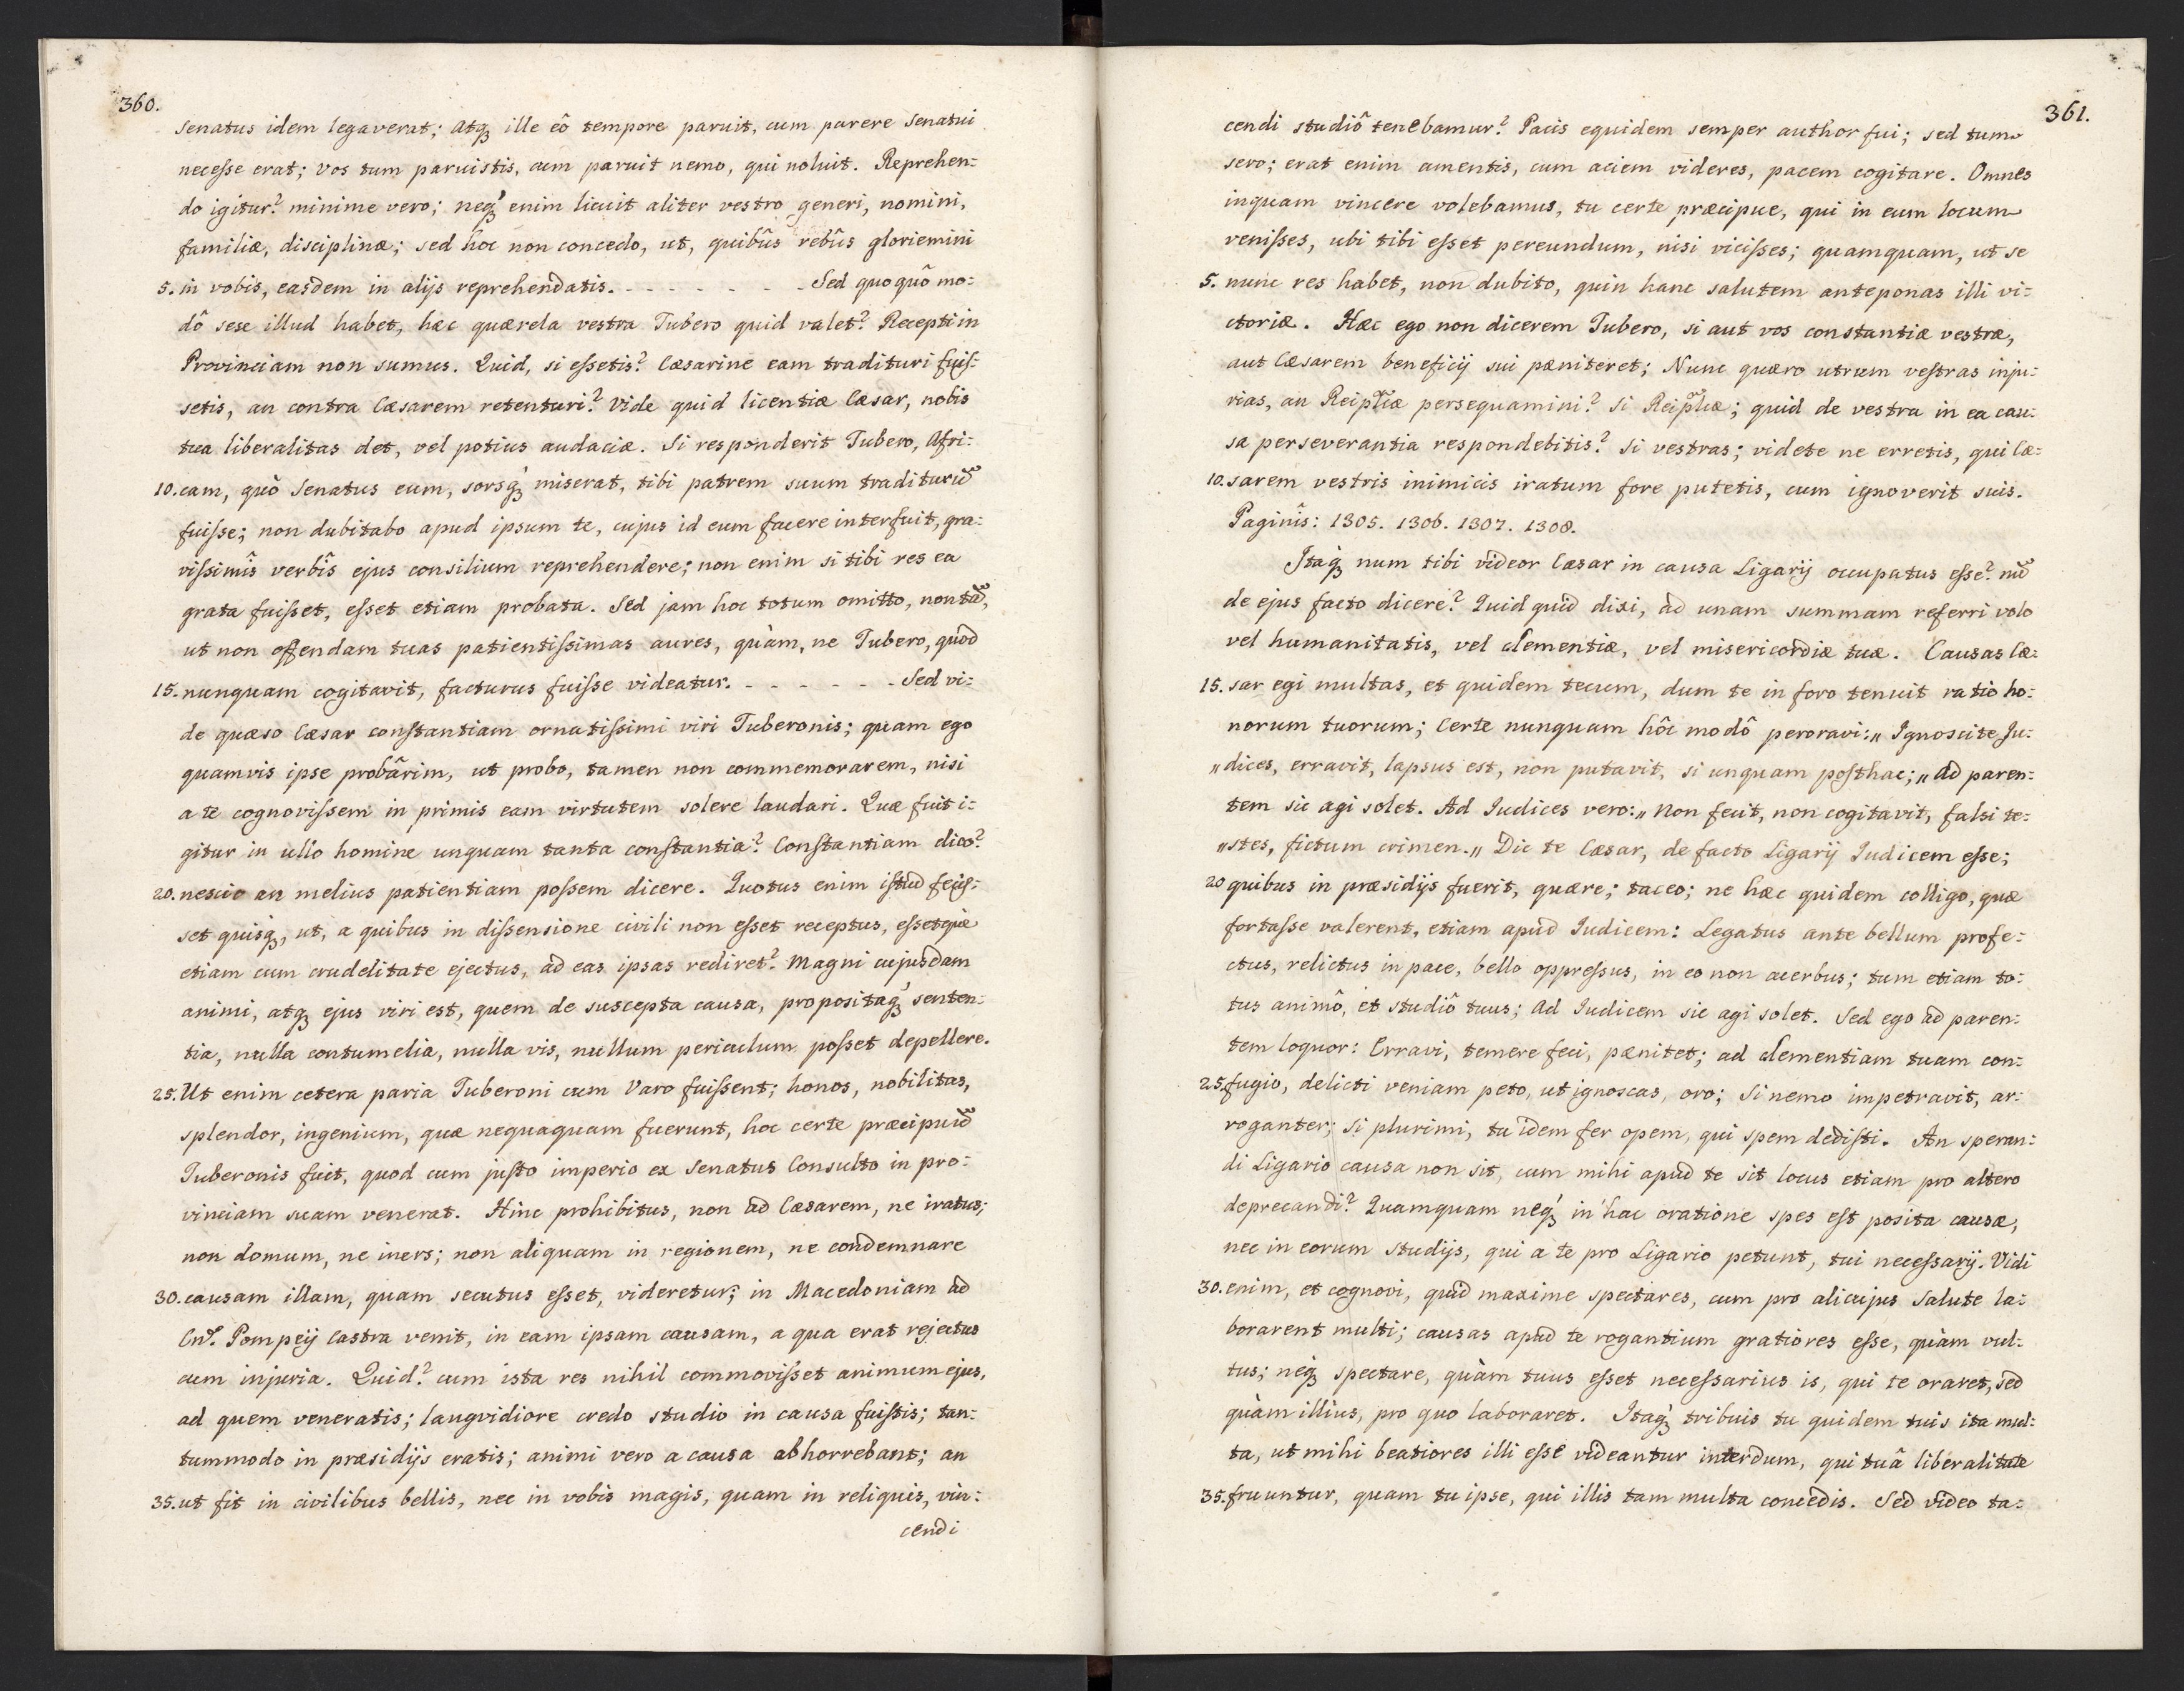 360.
senatus idem legaverat; Atq ille eô tempore paruit, cum parere Senatui
necesse erat; vos tum paruistis, cum paruit nemo, qui noluit. Reprehen:
do igitur? minime vero; neq enim licuit aliter vestro generi, nomini,
familiæ, disciplinæ; sed hoc non concedo, ut, quibûs rebûs gloriemini
5. in vobis, easdem in alijs reprehendatis. - - - - - - - Sed quoquô mo:
dô sese illud habet, hæc quærela vestra Tubero quid valet? Recepti in
Provinciam non sumus. Quid, si essetis? Cæsarine eam tradituri fuis:
setis, an contra Cæsarem retenturi? Vide quid licentiæ Cæsar, nobis
tua liberalitas det, vel potius audaciæ. Si responderit Tubero, Afri:
10. cam, quò Senatus eum, sorsq miserat, tibi patrem suum traditurũ
fuisse; non dubitabo apud ipsum te, cujus id eum facere interfuit, gra:
vissimîs verbîs ejus consilium reprehendere; non enim si tibi res ea
grata fuisset, esset etiam probata. Sed jam hoc totum omitto, non tã,
ut non offendam tuas patientissimas aures, quàm, ne Tubero, quod
15. nunquam cogitavit, facturus fuisse videatur. - - - - - - - Sed vi:
de quæso Cæsar constantiam ornatissimi viri Tuberonis; quam ego
quamvis ipse probârim, ut probo, tamen non commemorarem, nisi
a te cognovissem in primis eam virtutem solere laudari. Quæ fuit i:
gitur in ullo homine unquam tanta constantia? Constantiam dico?
20. nescio an melius patientiam possem dicere. Quotus enim istud fecis:
set quisq, ut, a quibus in dissensione civili non esset receptus, essetque
etiam cum crudelitate ejectus, ad eas ipsas rediret? Magni cujusdam
animi, atq ejus viri est, quem de suscepta causa, propositaq senten:
tia, nulla contumelia, nulla vis, nullum periculum posset depellere.
25. Ut enim cetera paria Tuberoni cum Varo fuissent; honos, nobilitas,
splendor, ingenium, quæ nequaquam fuerunt, hoc certe præcipuũ
Tuberonis fuit, quod cum justo imperio ex Senatus Consulto in pro:
vinciam suam venerat. Hinc prohibitus, non ad Cæsarem, ne iratus;
non domum, ne iners; non aliquam in regionem, ne condemnare
30. causam illam, quam secutus esset, videretur; in Macedoniam ad
Cn. Pompeij Castra venit, in eam ipsam causam, a qua erat rejectus
cum injuria. Quid? cum ista res nihil commovisset animum ejus,
ad quem veneratis; langvidiore credo studio in causa fuistis; tan:
tummodo in præsidijs eratis; animi vero a causa abhorrebant; an
35. ut fit in civilibus bellis, nec in vobis magis, quam in reliquis, vin:
cendi
361.
cendi studiô tenebamur? Pacis equidem semper author fui; sed tum
sero; erat enim amentis, cum aciem videres, pacem cogitare. Omnes
inquam vincere volebamus, tu certe præcipue, qui in eum locum
venisses, ubi tibi esset pereundum, nisi vicisses; quamquam, ut se
5. nunc res habet, non dubito, quin hanc salutem anteponas illi vi:
ctoriæ. Hæc ego non dicerem Tubero, si aut vos constantiæ vestræ,
aut Cæsarem beneficij sui pæniteret; Nunc quæro utrum vestras inju:
rias, an Reiplĩcæ persequamini? Si Reiplĩcæ; quid de vestra in ea cau:
sa perseverantia respondebitis? Si vestras; videte ne erretis, qui Cæ:
10. sarem vestris inimicis iratum fore putetis, cum ignoverit suis.
Paginîs: 1305. 1306. 1307. 1308.
Itaq num tibi videor Cæsar in causa Ligarij occupatus esse? nũ
de ejus facto dicere? Quid quid dixi, ad unam summam referri volo
vel humanitatis, vel clementiæ, vel misericordiæ tuæ. Causas Cæ:
15. sar egi multas, et quidem tecum, dum te in foro tenuit ratio ho:
norum tuorum; Certe nunquam hôc modô peroravi: „ Ignoscite Ju:
„ dices, erravit, lapsus est, non putavit, si unquam posthac; „ Ad paren:
tem sic agi solet. Ad Iudices vero: „ Non fecit, non cogitavit, falsi te:
„ stes, fictum crimen. „ Dic te Cæsar, de facto Ligarij Iudicem esse;
20 quibus in præsidijs fuerit, quære; taceo; ne hæc quidem colligo, quæ
fortasse valerent, etiam apud Iudicem: Legatus ante bellum profe:
ctus, relictus in pace, bello oppressus, in eo non acerbus; tum etiam to:
tus animô, et studiô tuus; Ad Iudicem sic agi solet. Sed ego ad paren:
tem loquor: Erravi, temere feci, pænitet; ad clementiam tuam con:
25. fugio, delicti veniam peto, ut ignoscas, oro; Si nemo impetravit, ar:
roganter; si plurimi, tu idem fer opem, qui spem dedisti. An speran:
di Ligario causa non sit, cum mihi apud te sit locus etiam pro altero
deprecandi? Quamquam neq in hac oratione spes est posita causæ,
nec in eorum studijs, qui a te pro Ligario petunt, tui necessarij. Vidi
30. enim, et cognovi, quid maxime spectares, cum pro alicujus salute la:
borarent multi; causas apud te rogantium gratiores esse, quàm vul:
tus; neq spectare, quàm tuus esset necessarius is, qui te oraret, sed
quàm illius, pro quo laboraret. Itaq tribuis tu quidem tuis ita mul:
ta, ut mihi beatiores illi esse videantur interdum, qui tuâ liberalitate
35. fruuntur, quam tu ipse, qui illis tam multa concedis. Sed video ta: